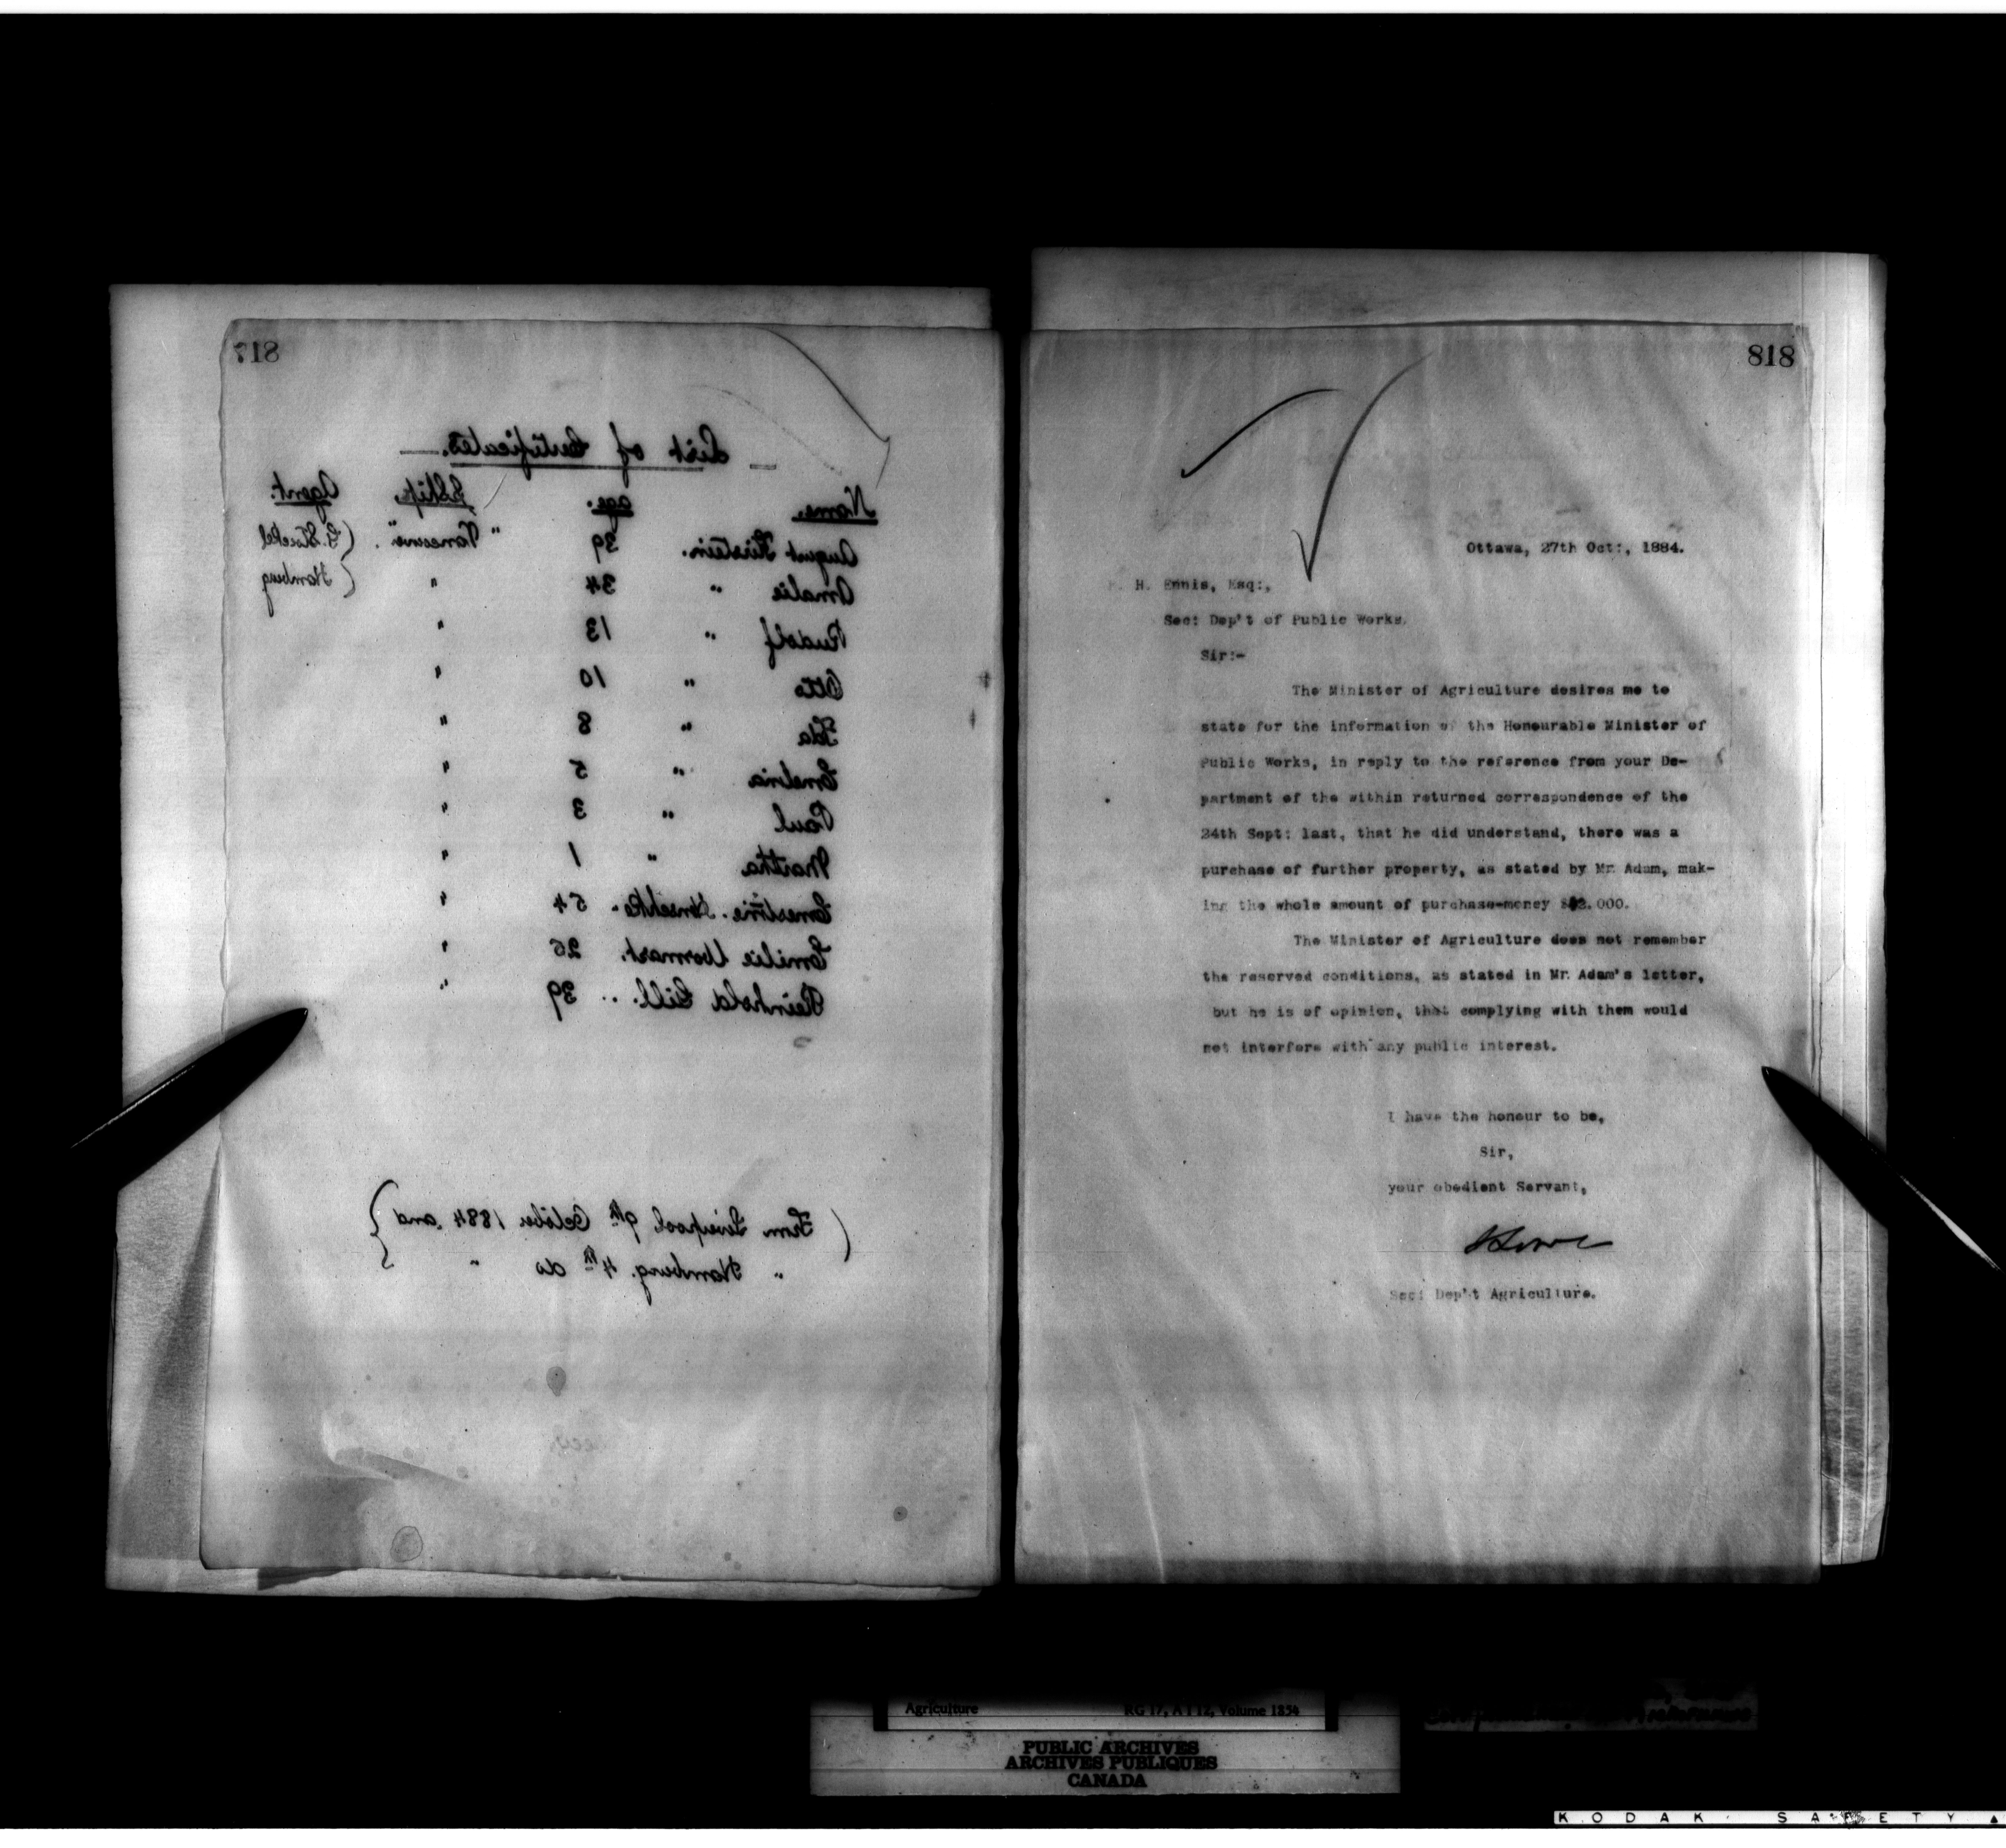 817
List of Certificates.
Name. age. S.Ship. Agent.
August Kirstein. 39 "Pomerania". (G. Stockel
Amalie " 34 " (Hamburg
Rudolf " 13 "
Otto " 10 "
Ida " 8 "
" 5 "
Paul " 3 "
Martha " 1 "
Ernestine 54 "
Emilie 26 "
Reinhold Lill. .. 39 "
(From Liverpool 9th October 1884 and }
" Hamburg. 4th do " }
818
Ottawa, 27th Oct:, 1884.
H. Ennis, Esq:,
Sec: Dep't of Public Works.
Sir:-
The Minister of Agriculture desires me to
state for the information of the Honourable Minister of
Public Works, in reply to the reference from your De-
partment of the within returned correspondence of the
24th Sept: last, that he did understand, there was a
purchase of further property, as stated by Mr. Adam, mak-
ing the whole amount of purchase-money 2.000.
The Minister of Agriculture does not remember
the reserved conditions, as stated in Mr. Adam's letter,
but he is of opinion, that complying with them would
not interfere with any public interest.
I have the honour to be,
Sir,
your obedient Servant,
J Lowe
Sec: Dep't Agriculture.
Agriculture RG 17, A I 12, Volume 1854
PUBLIC ARCHIVES
ARCHIVES PUBLIQUES
CANADA
KODAK SAFETY